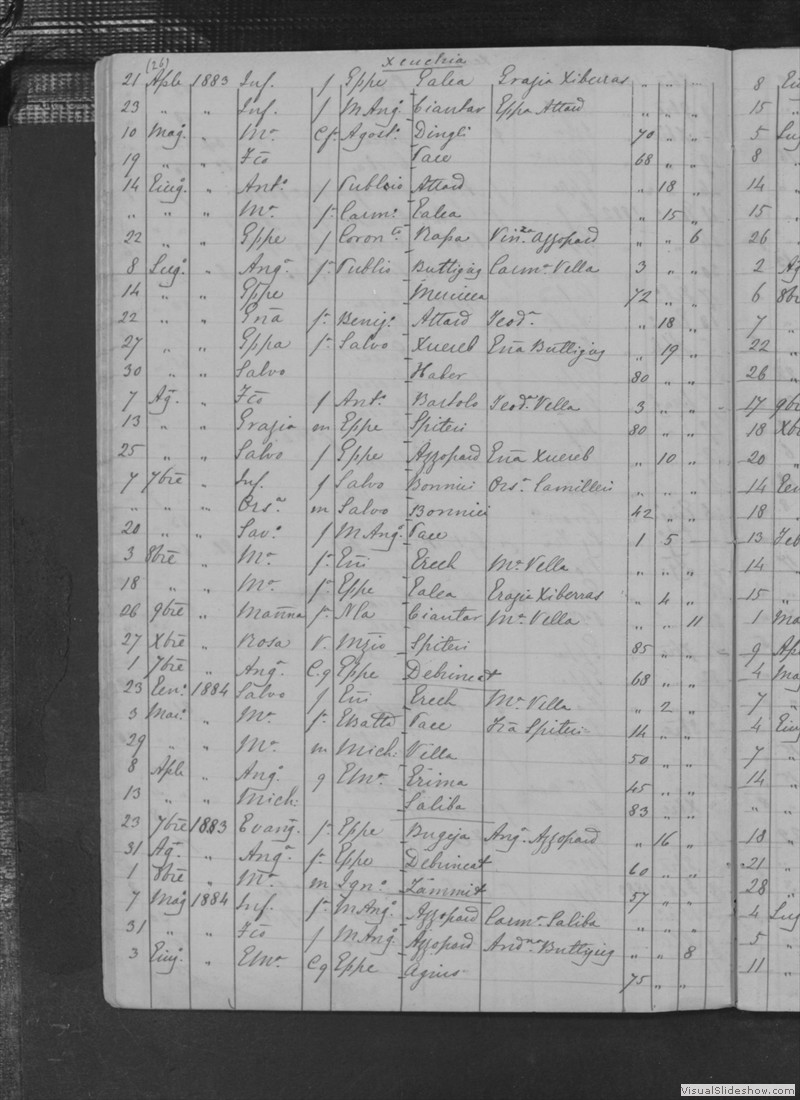 (26) Xeuchia
21 Aple 1883 Inf. f Gppe Galea Grazia Xiberras " " "
23 " " Inf. f M Angº Ciantar Gppa Attard " " "
10 Magº " Mª C f. Agostº Dingli 70 " "
19 " " Fco Pace 68 " "
14 Giugº " Antº f Publio Attard " 18 "
" " " Mª f. Carmº Galea " 15 "
22 " " Gppe f Coron Rapa Vinza Azzopard " " 6
8 Lugº " Angª f. Publio Buttigieg Carmª Vella 3 " "
14 " " Gppe Mercieca 72 " "
22 " " f. Benigº Attard Teodª " 18 "
27 " " Gppa f. Salvo Xuereb Buttigieg " 19 "
30 " " Salvo Haber 80 " "
7 Agº " Fco f Antº Bartolo Teodª Vella 3 " "
13 " " Grazia m Gppe Spiteri 80 " "
25 " " Salvo f Gppe Azzopard Xuereb " 10 "
7 7bre " Inf. f Salvo Bonnici Orsª Camilleri " " "
" " " Orsª m Salvo Bonnici 42 " "
20 " " Savª f M Angº Pace 1 5 "
3 8bre " Mª f. Grech Mª Vella " " "
18 " " Mª f. Gppe Galea Grazia Xiberras " 4 "
26 9bre " Marina f. Nla Ciantar Mª Vella " " 11
27 Xbre " Rosa v. Mzio Spiteri 85 " "
1 7bre " Angª C.g Gppe Debrincat 68 " "
23 Genº 1884 Salvo f Grech Mª Vella " 2 "
3 Marº " Mª f. Gbatta Pace Fca Spiteri 14 " "
29 " " Mª m Mich: Villa 50 " "
8 Aple " Angª g Grima 45 " "
13 " " Mich: Saliba 83 " "
23 7bre 1883 Evangª f. Gppe Bugeja Angª Azzopard " 16 "
31 Agº " Angª f. Gppe Debrincat 60 " "
1 8bre " Mª m Ignº Zammit 57 " "
7 Magº 1884 Inf. f. M Angº Azzopard Carmª Saliba " " "
31 " " Fco f M Angº Azzopard Buttigieg " " 8
3 Giugº " C g Gppe Agius 75 " "
8
15
5
8
14
15
26
2
6 8bre
7 "
22 "
26 "
17 9bre
18 Xbre
20 "
14
18 "
13
14 "
15 "
1
9
4
7 "
4
7 "
14 "
" "
18 "
21 "
28 "
4
5 "
11 "
VisualSlideshow.com